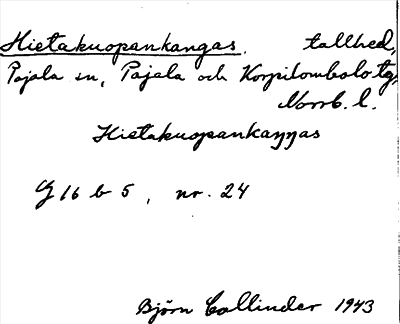 Hietakuopankangas. tallhed,
Pajala sn, Pajala och Korpilombolo tg,
Norrb. l.
Hietakuopankaŋŋas
G 16 b 5, nr. 24
Björn Collinder 1943